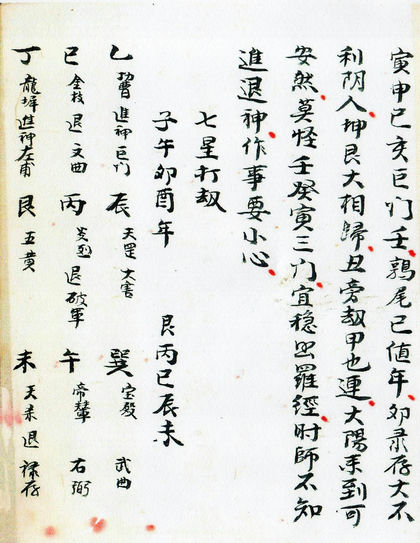 寅甲巳亥巨门壬鶉尾已值年卯录存大不
利阴人坤艮大相歸丑旁劫甲也連大陽来到可
安然莫怪壬癸寅三门宜穏羅經时師不知
進退神作事要小心
七星打劫
子午卯酉年 艮丙巳辰未
乙 進神巨门 辰 天罡大害 巽 宝殿 武曲
巳 金枝 退文曲 丙 退破軍 午 帝輦 右弼
丁 龍墀進神左甫 艮 五黄 未 退 祿存